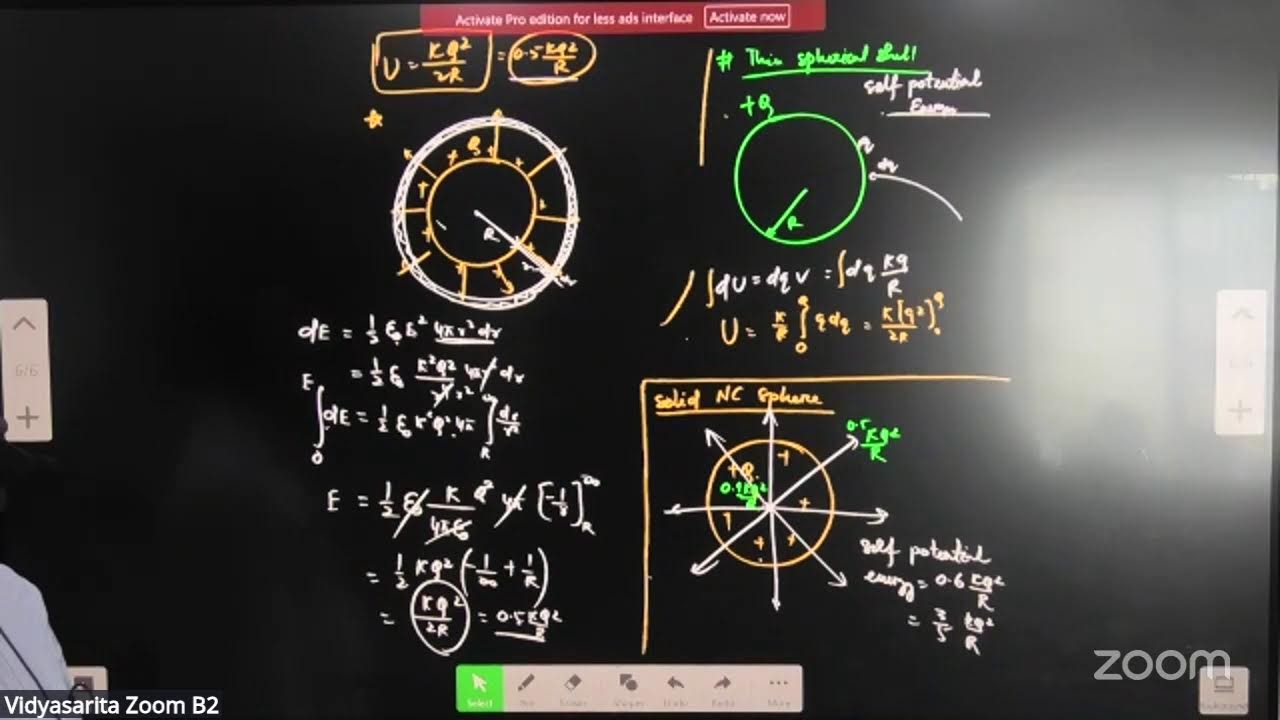 Activate Pro edition for less ads interface Activate now
U = KQ²/2R = 0.5 KQ²/R
Q
R
dE = 1/2 ε₀ E² 4πr² dr
= 1/2 ε₀ K²Q²/r⁴r² 4πr² dr
E
∫dE = 1/2 ε₀ K²Q² 4π ∫ dr/r²
0 R
E = 1/2 ε₀ K/4πε₀ Q² 4π [-1/r]∞ R
= 1/2 KQ² (-1/∞ + 1/R)
= KQ²/2R = 0.5 KQ²/R
# Thin spherical shell
self potential
Energy
+Q
q
dq
R
∫dU = dq V = ∫dq Kq/R
U = K/R ∫ q dq = K[q²]/2R
Solid NC sphere
0.5 KQ²/R
+Q
self potential
energy = 0.6 KQ²/R
= 3/5 KQ²/R
6/6
Select
zoom
Vidyasarita Zoom B2